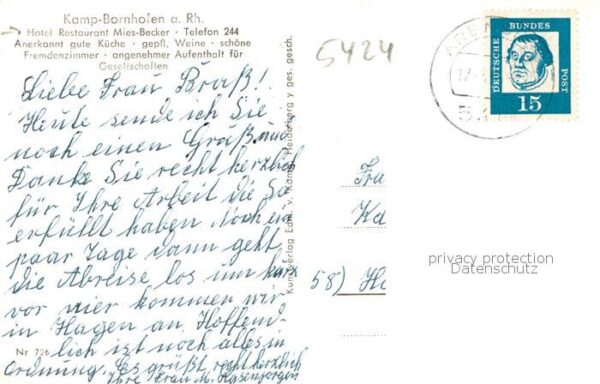 Kamp-Bornhofen a. Rh.
Hotel Restaurant Mies-Becker · Telefon 244
Anerkannt gute Küche · gepfl. Weine · schöne
Fremdenzimmer · angenehmer Aufenthalt für
Gesellschaften
5424
DEUTSCHE BUNDES POST
15
Liebe Frau Braß!
Heute sende ich Sie
noch einen Gruß und
Danke Sie recht herzlich
für Ihre Arbeit die Sie
erfüllt haben Noch ein
paar Tage dann geht
die Abreise los um kurz
vor vier kommen wir
in Hagen an. Hoffend-
lich ist noch alles in
Ordnung. Es grüßt recht herzlich
Ihre Frau M. Hasenjorgen
Nr 726
Kunstverlag Edm. v. König, Heidelberg y ges. gesch.
Fra
Ka
58) Ha
privacy protection
Datenschutz